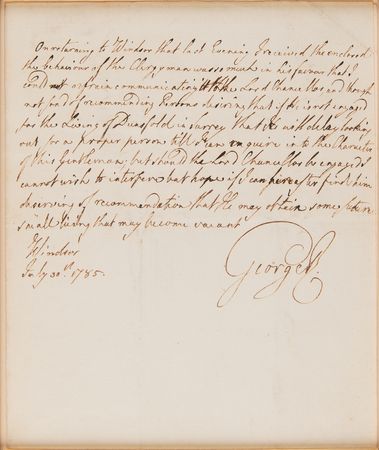 On returning to Windsor that last Evening I received the enclosed
the behaviour of the Clergyman was so much in his favour that I
could not refrain communicating it to the Lord Chancellor and though
not fond of recommending Persons desiring that if He is not engaged
for the Living of Dunsfold in Surrey that He will delay looking
out for a proper person till I can inquire into the Character
of this Gentleman; but should the Lord Chancellor be engaged I
cannot wish to interfere but hope if I can hereafter find him
deserving of recommendation that He may obtain some future
small living that may become vacant
Windsor
July 30th. 1785.
George R.